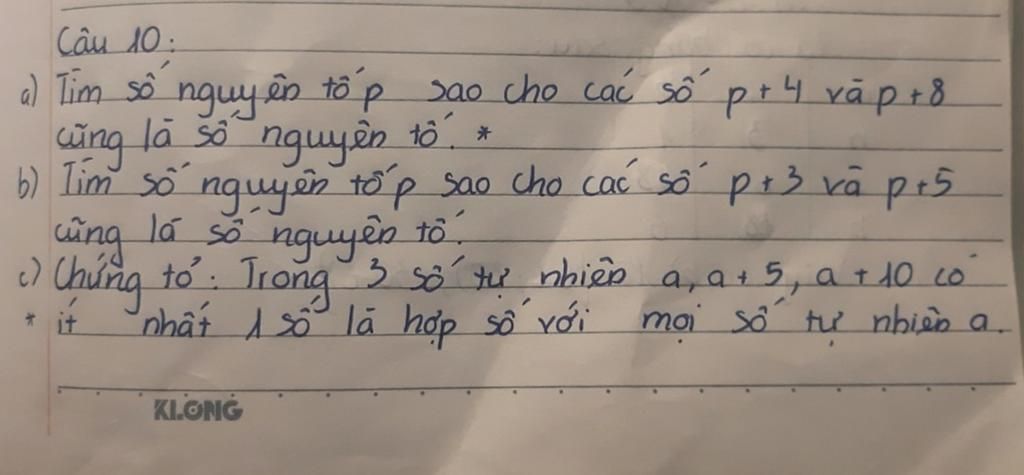 Câu 10:
a) Tìm số nguyên tố p sao cho các số p+4 và p+8
cũng là số nguyên tố. *
b) Tìm số nguyên tố p sao cho các số p+3 và p+5
cũng là số nguyên tố.
c) Chứng tỏ: Trong 3 số tự nhiên a, a+5, a+10 có
* ít nhất 1 số là hợp số với mọi số tự nhiên a.
KLONG